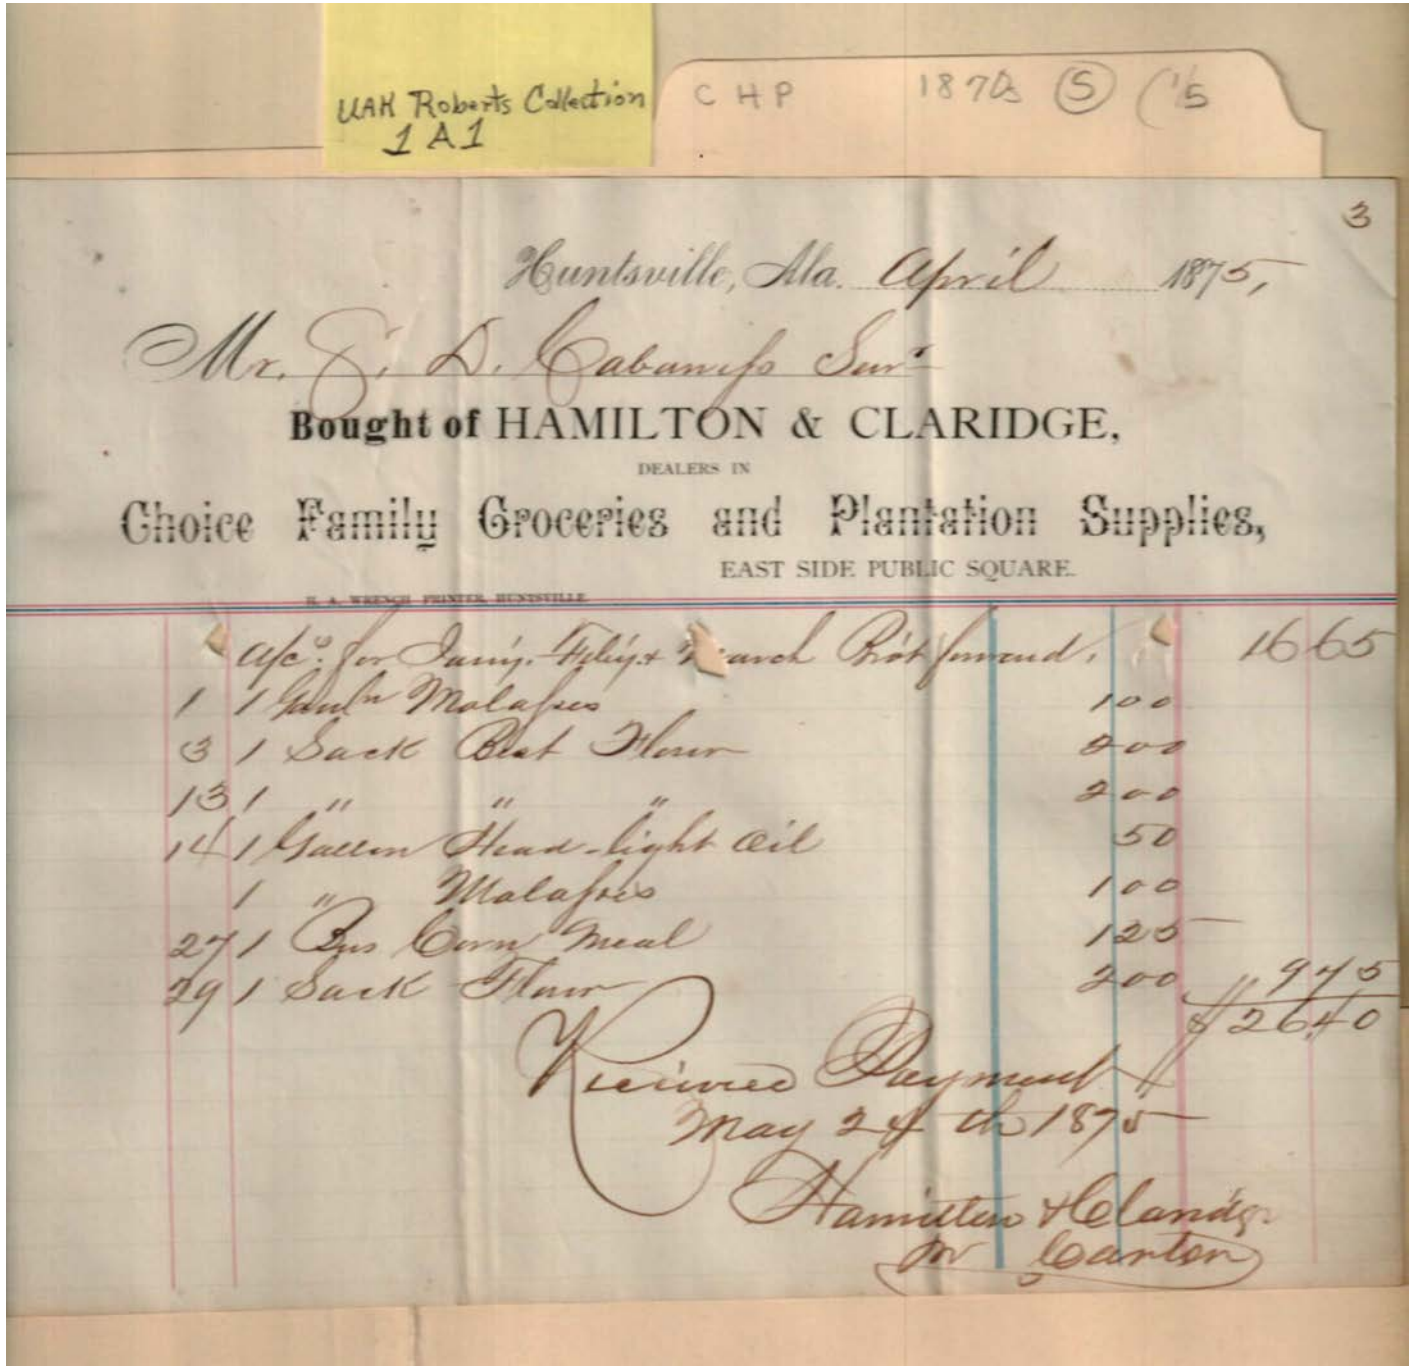 UAH Roberts Collection
1 A 1
C H P 1870s (5) (1/5
3
Huntsville, Ala. April 1875,
Mr. S. D. Cabaniss
Bought of HAMILTON & CLARIDGE,
DEALERS IN
Choice Family Groceries and Plantation Supplies,
EAST SIDE PUBLIC SQUARE.
H. A. WRENCH PRINTER, HUNTSVILLE
a/c. for Jany. Feby & March Brot forward. 16 65
1 1 Galln Molasses 1 00
3 1 Sack Best Flour 2 00
13 1 " " " 2 00
14 1 Gallon Head-light Oil 50
1 " Molasses 1 00
27 1 Bus Corn Meal 1 25
29 1 Sack Flour 2 00 9 75
$26.40
Received Payment
May 24th 1875
Hamilton & Claridge
pr Carter